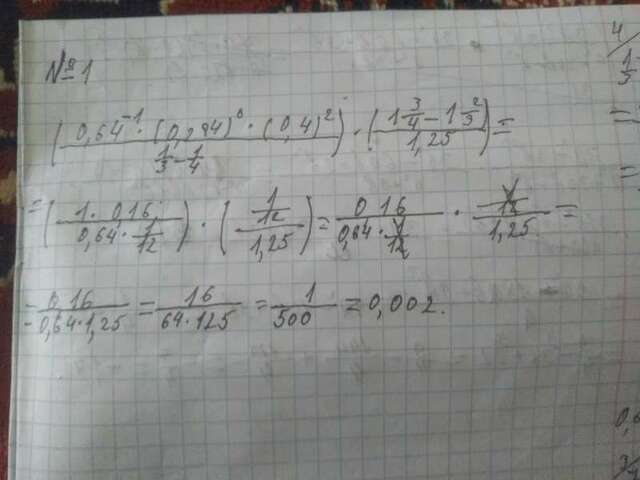 № 1
(0,64⁻¹ · (0,294)⁰ · (0,4)² / (1/3 − 1/4)) · ((1 3/4 − 1 2/3) / 1,25) =
= (1 · 0 16 / (0,64 · 1/12)) · ((1/12) / 1,25) = 0 16 / (0,64 · 1/12) · (1/12) / 1,25 =
= 0 16 / (0,64 · 1,25) = 16 / (64 · 125) = 1 / 500 = 0,002.
4
1/3
=
=
0,6
3/